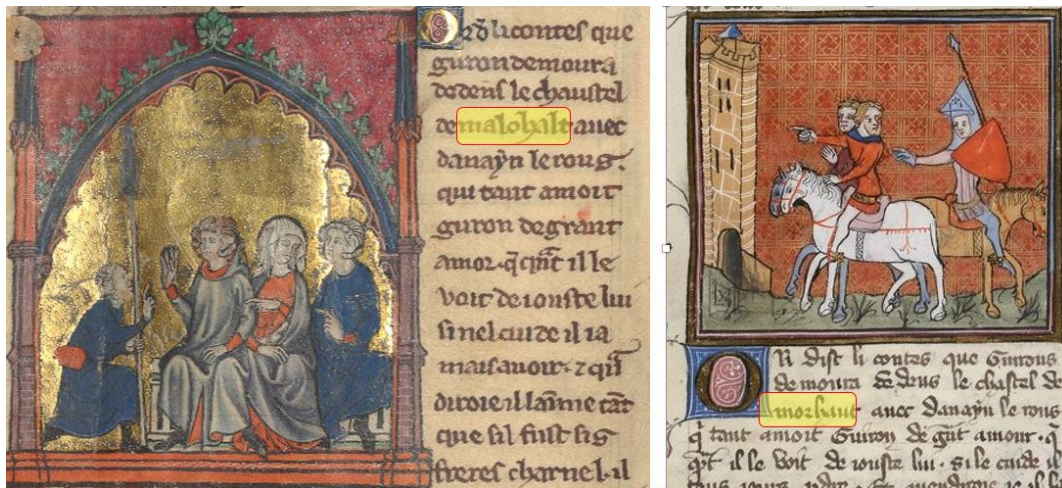 Or dist li contes que
guron demoura
dedens le chaustel
de malohalt avec
danayn le roug.
qui tant amoit
guron de grant
amor. q̃ q̃nt il le
voit de iouste lui
si nel cuide il ia
mais avoir. ⁊ q̃m̃
diroie il lam̃e tãt
que sil fust sis
freres charnel. il
OR dist li contes que Guirons
demoura dedens le chastel de
morhaut avec danayn le rous
q̃ tant amoit Guiron de g̃nt amour. q̃
q̃nt il le voit de iouste lui. si le cuide il